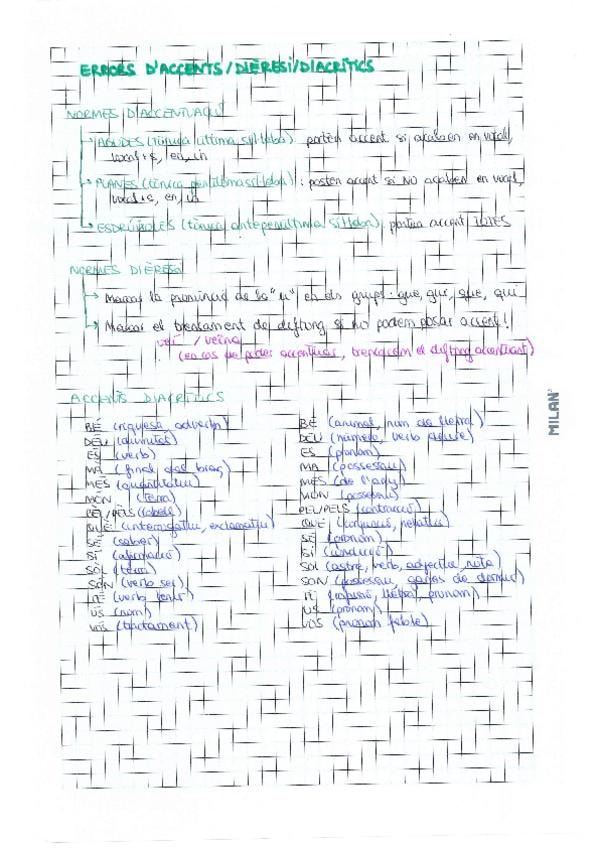 ERRORS D'ACCENTS/DIÈRESI/DIACRÍTICS
NORMES D'ACCENTUACIÓ
AGUDES (tònica última síl·laba) porten accent si acaben en vocal,
vocal+s, en, in
PLANES (tònica penúltima síl·laba): porten accent si NO acaben en vocal,
vocal+s, en, in
ESDRÚIXOLES (tònica antepenúltima síl·laba) porten accent TOTES
NORMES DIÈRESI
Marcar la pronúncia de la "u" en els grups: güe, güi, qüe, qüi
Marcar el trencament de diftong si no podem posar accent!
veí / veïna
(en cas de poder accentuar, trenquem el diftong accentuant)
ACCENTS DIACRÍTICS
BÉ (riquesa, adverbi) BE (animal, nom de lletra)
DÉU (divinitat) DEU (número, verb deure)
ÉS (verb) ES (pronom)
MÀ (final del braç) MA (possessiu)
MÉS (quantitatiu) MES (de l'any)
MÓN (terra) MON (possessiu)
PÈL/PÈLS (cabell) PEL/PELS (contracció)
QUÈ (interrogatiu, exclamatiu) QUE (conjunció, relatiu)
SÉ (saber) SE (pronom)
SÍ (afirmació) SI (condició)
SÒL (terra) SOL (astre, verb, adjectiu, nota)
SÓN (verb ser) SON (possessiu, ganes de dormir)
TÉ (verb tenir) TE (infusió, lletra, pronom)
ÚS (nom) US (pronom)
VÓS (tractament) VOS (pronom feble)
MILAN